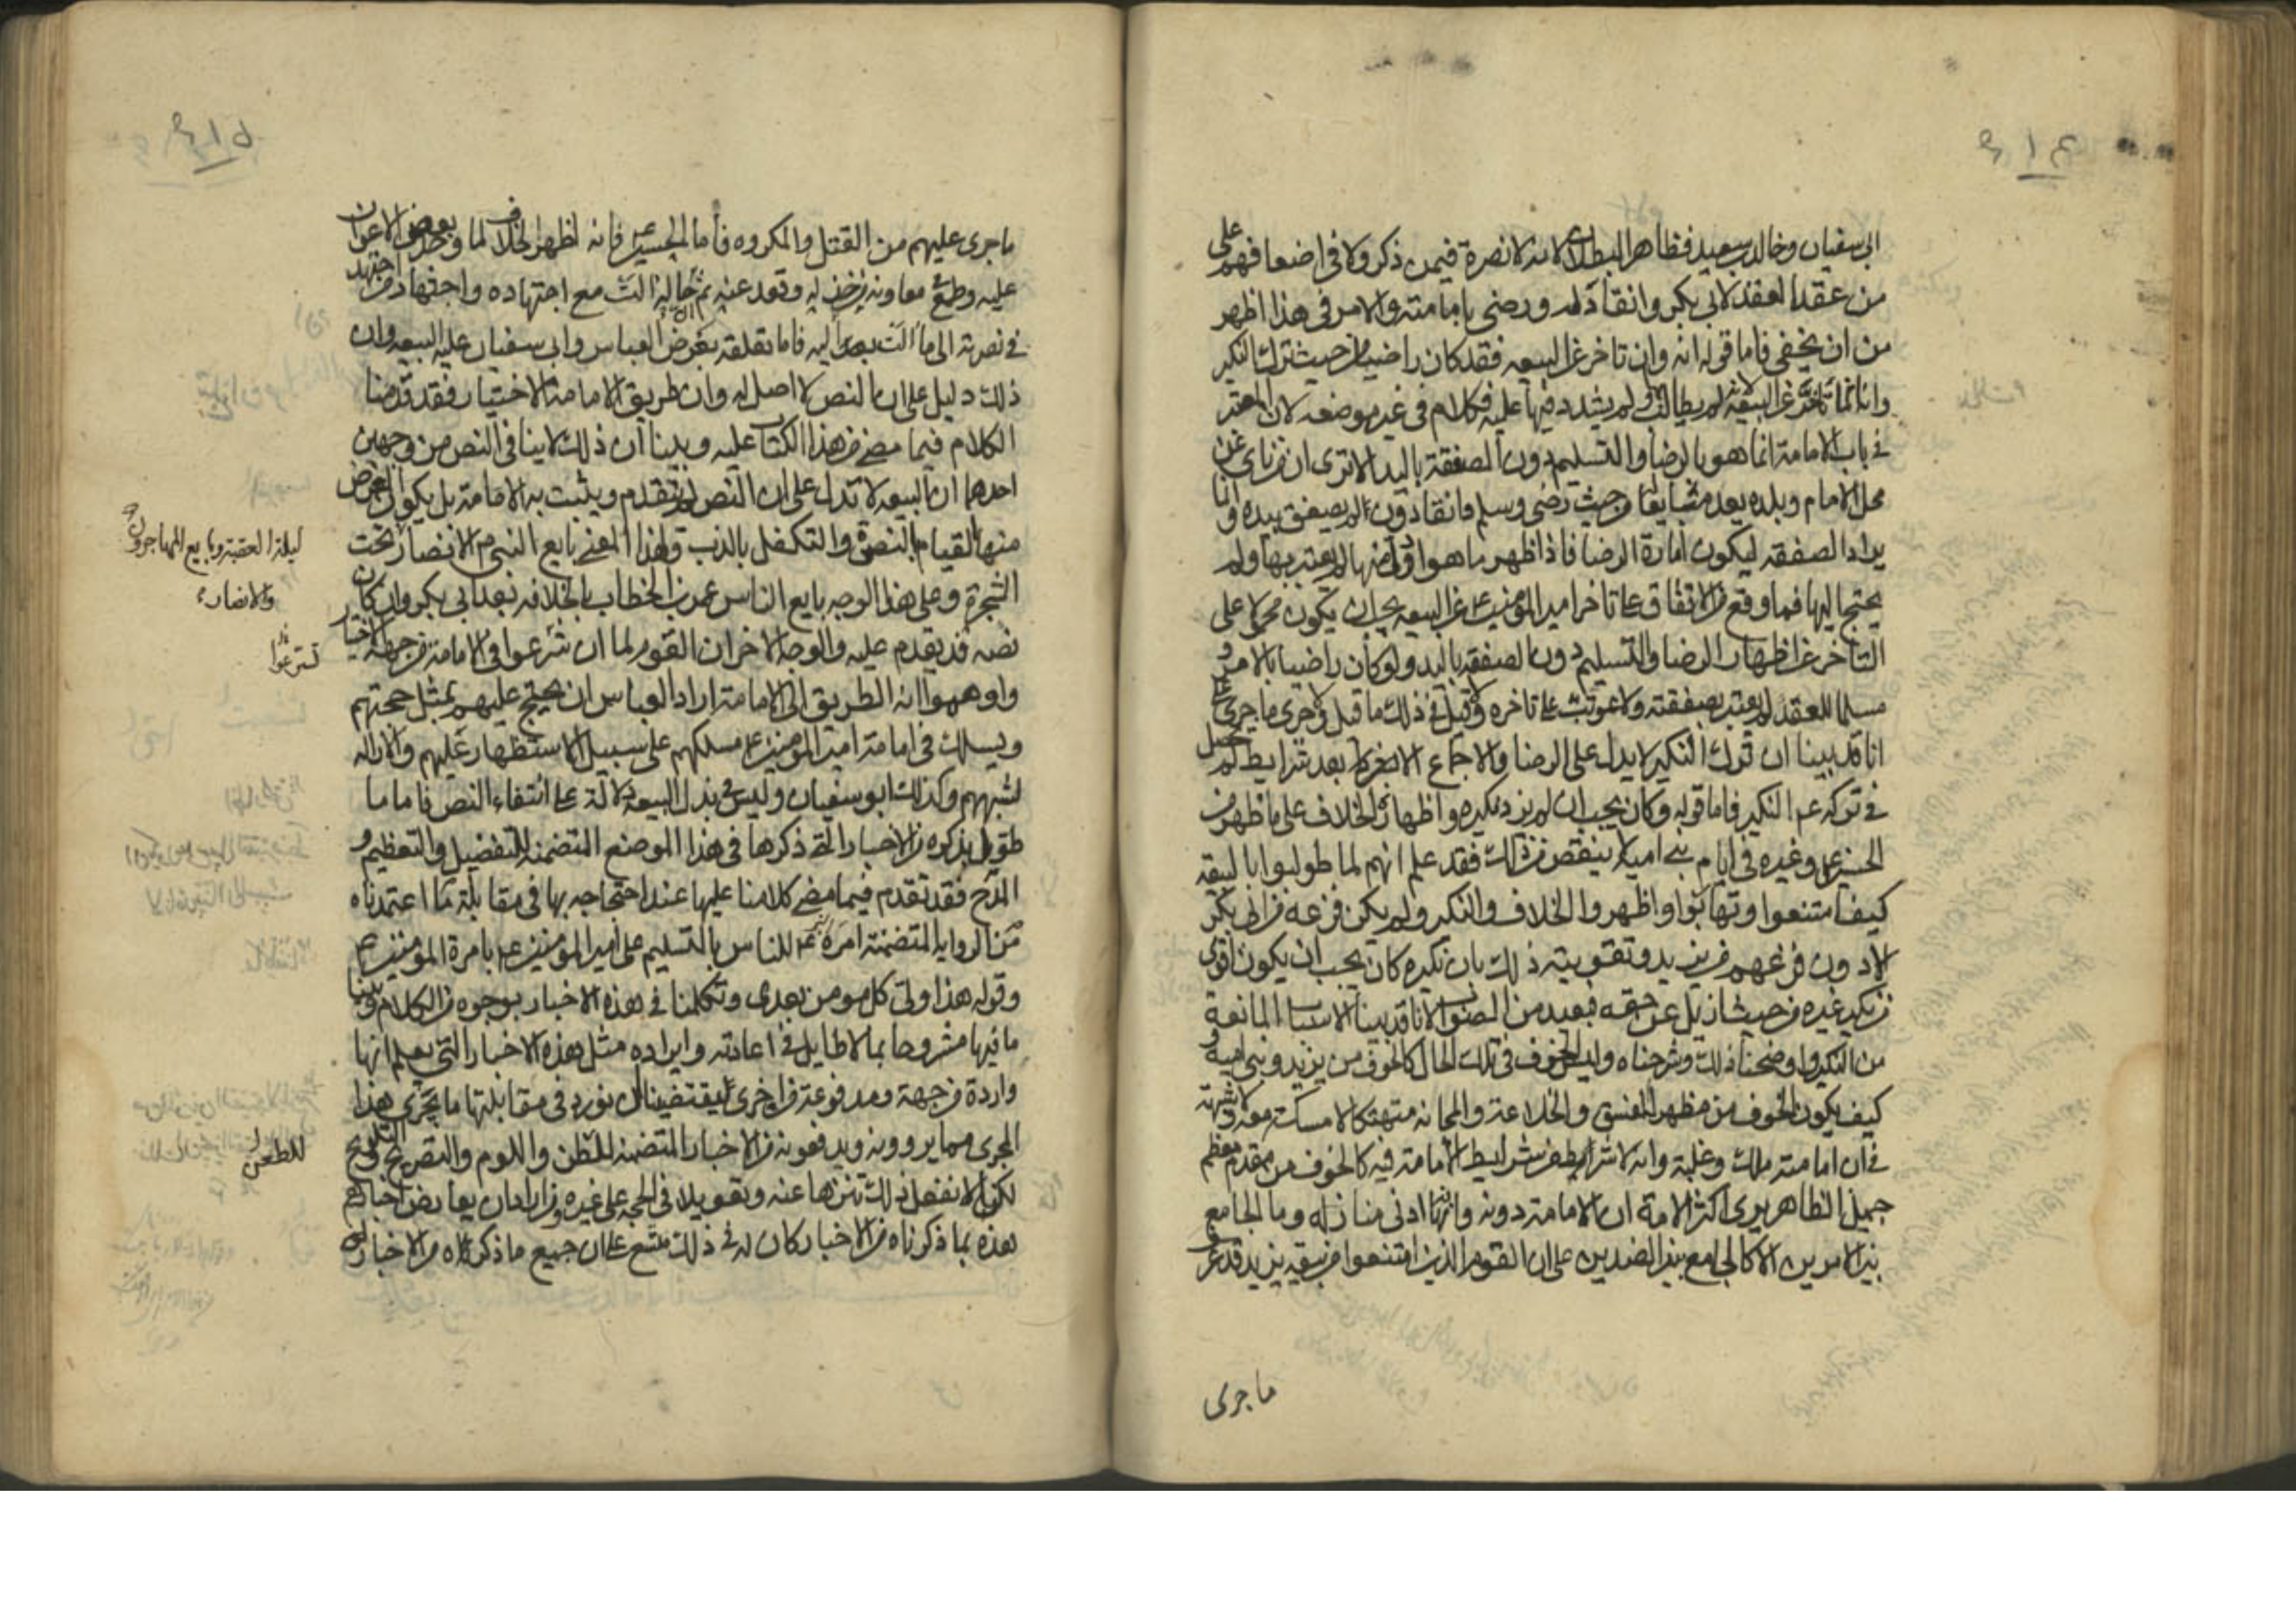 ٤١٤
ابي سفيان وخالد بن سعيد فظاهر البطلان لانه لا نصرة فيمن ذكر ولا في اضعافهم على
من عقد العقد لابي بكر وانقاد له ورضي بامامته والامر في هذا اظهر
من ان يخفى فاما قوله انه وان تاخر عن البيعه فقد كان راضيا من حيث ترك النكير
وانه انما تاخر عن البيعة لانه لم يطالب ولم يشدد فيها عليه فكلام في غير موضعه لان المعتبر
في باب الامامة انما هو بالرضا والتسليم دون الصفقة باليد الا ترى ان من ناى عن
محل الامام وبلده يعد مبايعا من حيث رضي وسلم وانقاد وان لم يصفق بيده وانما
يراد الصفقه ليكون امارة الرضا فاذا ظهر ما هو اولى منها لم يعتبر بها ولم
يحتج اليها فما وقع من الاتفاق على تاخر امير المؤمنين ع عن البيعه يجب ان يكون محمولا على
التاخر عن اظهار الرضا والتسليم دون الصفقه باليد ولو كان راضيا بالامر و
مسلما للعقد لم يعتبر بصفقته ولا عوتب على تاخره ولا قيل في ذلك ما قيل ولا جرى ما جرى على
انا قد بينا ان ترك النكير لا يدل على الرضا والاجماع الا بعد شرايط لم تحصل
في تركه ع النكير فاما قوله وكان يجب ان لم يزد نكيره واظهاره الخلاف على ما ظهر من
الحسين ع وغيره في ايام بني امية لا ينقص من ذلك فقد علم انهم لما طولبوا بالبيعه
كيف امتنعوا وتهاربوا واظهروا الخلاف والنكير ولم يكن فزعه من ابي بكر
الا دون فزعهم من يزيد وتقويته ذلك بان نكيره كان يجب ان يكون اقوى
من نكير غيره من حيث ازيل عن حقه فبعيد من الصواب لانا قد بينا الاسباب المانعة
من النكير واوضحنا ذلك وشرحناه وليس الخوف في تلك الحال كالخوف من يزيد وبني امية و
كيف يكون الخوف من مظهر الفسق والخلاعة والمجانه متهتك لا مسكة معه ولا شبهة
في ان امامته ملك وغلبة وانه لا شرط من شرايط الامامة فيه كالخوف من مقدم معظم
جميل الظاهر يرى اكثر الامة ان الامامة دونه وانها ادنى منازله وما الجامع
بين الامرين الا كالجامع بين الضدين على ان القوم الذين امتنعوا من بيعة يزيد قد عرف
ما جرى
٤١٥
ما جرى عليهم من القتل والمكروه فاما الحسين ع فانه اظهر الخلاف لما وجد بعض الاعوان
عليه وطمع في معاونة من خذله وقعد عنه ثم حاله الت مع اجتهاده واجتهاد من اجتهد
في نصرته الى ما الت اليه فاما تعلقه بعرض العباس وابي سفيان عليه البيعه وان
ذلك دليل على ان النص لا اصل له وان طريق الامامة الاختيار فقد قدمنا
الكلام فيما مضى من هذا الكتاب عليه وبينا ان ذلك لا ينافي النص من وجهين
احدهما ان البيعه لا تدل على ان النص لم يتقدم ويثبت به الامامة بل يكون الغرض
منها القيام بالنصرة والتكفل بالذب ولهذا المعنى بايع النبي ص الانصار تحت
ليلة العقبة وبايع المهاجرون
والانصار
الشجرة وعلى هذا الوجه بايع الناس عمر بن الخطاب بالخلافه بعد ابي بكر وان كان
نصه قد تقدم عليه والوجه الاخر ان القوم لما ان شرعوا في الامامة من جهة الاختيار
تسرعوا
واوهموا انه الطريق الى الامامة اراد العباس ان يحتج عليهم بمثل حجتهم
ويسلك في امامة امير المؤمنين ع مسلكهم على سبيل الاستظهار عليهم والازاله
لشبههم وكذلك ابو سفيان وليس في بذل البيعه دلالة على انتفاء النص فاما ما
طول بذكره من الاخبار التي ذكرها في هذا الموضع المتضمنه للتفضيل والتعظيم و
المدح فقد تقدم فيما مضى كلامنا عليها عند احتجاجه بها في مقابلة ما اعتمدناه
من الرواية المتضمنة امره ع للناس بالتسليم على امير المؤمنين ع بامرة المؤمنين
وقوله هذا ولي كل مومن بعدي وتكلمنا في هذه الاخبار بوجوه من الكلام وبينا
ما فيها مشروحا بما لا طايل في اعادته وايراده مثل هذه الاخبار التي يعلم انها
واردة من جهة ومدفوعة من اخرى يقتضينا ان نورد في مقابلتها ما يجري هذا
المجرى مما يروونه ويدفعونه من الاخبار المتضمنه للظن واللوم والتصريح والتلويح
للطعن
لكنا لا نفعل ذلك تنزها عنه وتعويلا في الحجه على غيره ومن اراد ان يعارض اخبارهم
هذه بما ذكرناه من الاخبار كان له في ذلك متسع على ان جميع ما ذكرناه من الاخبار